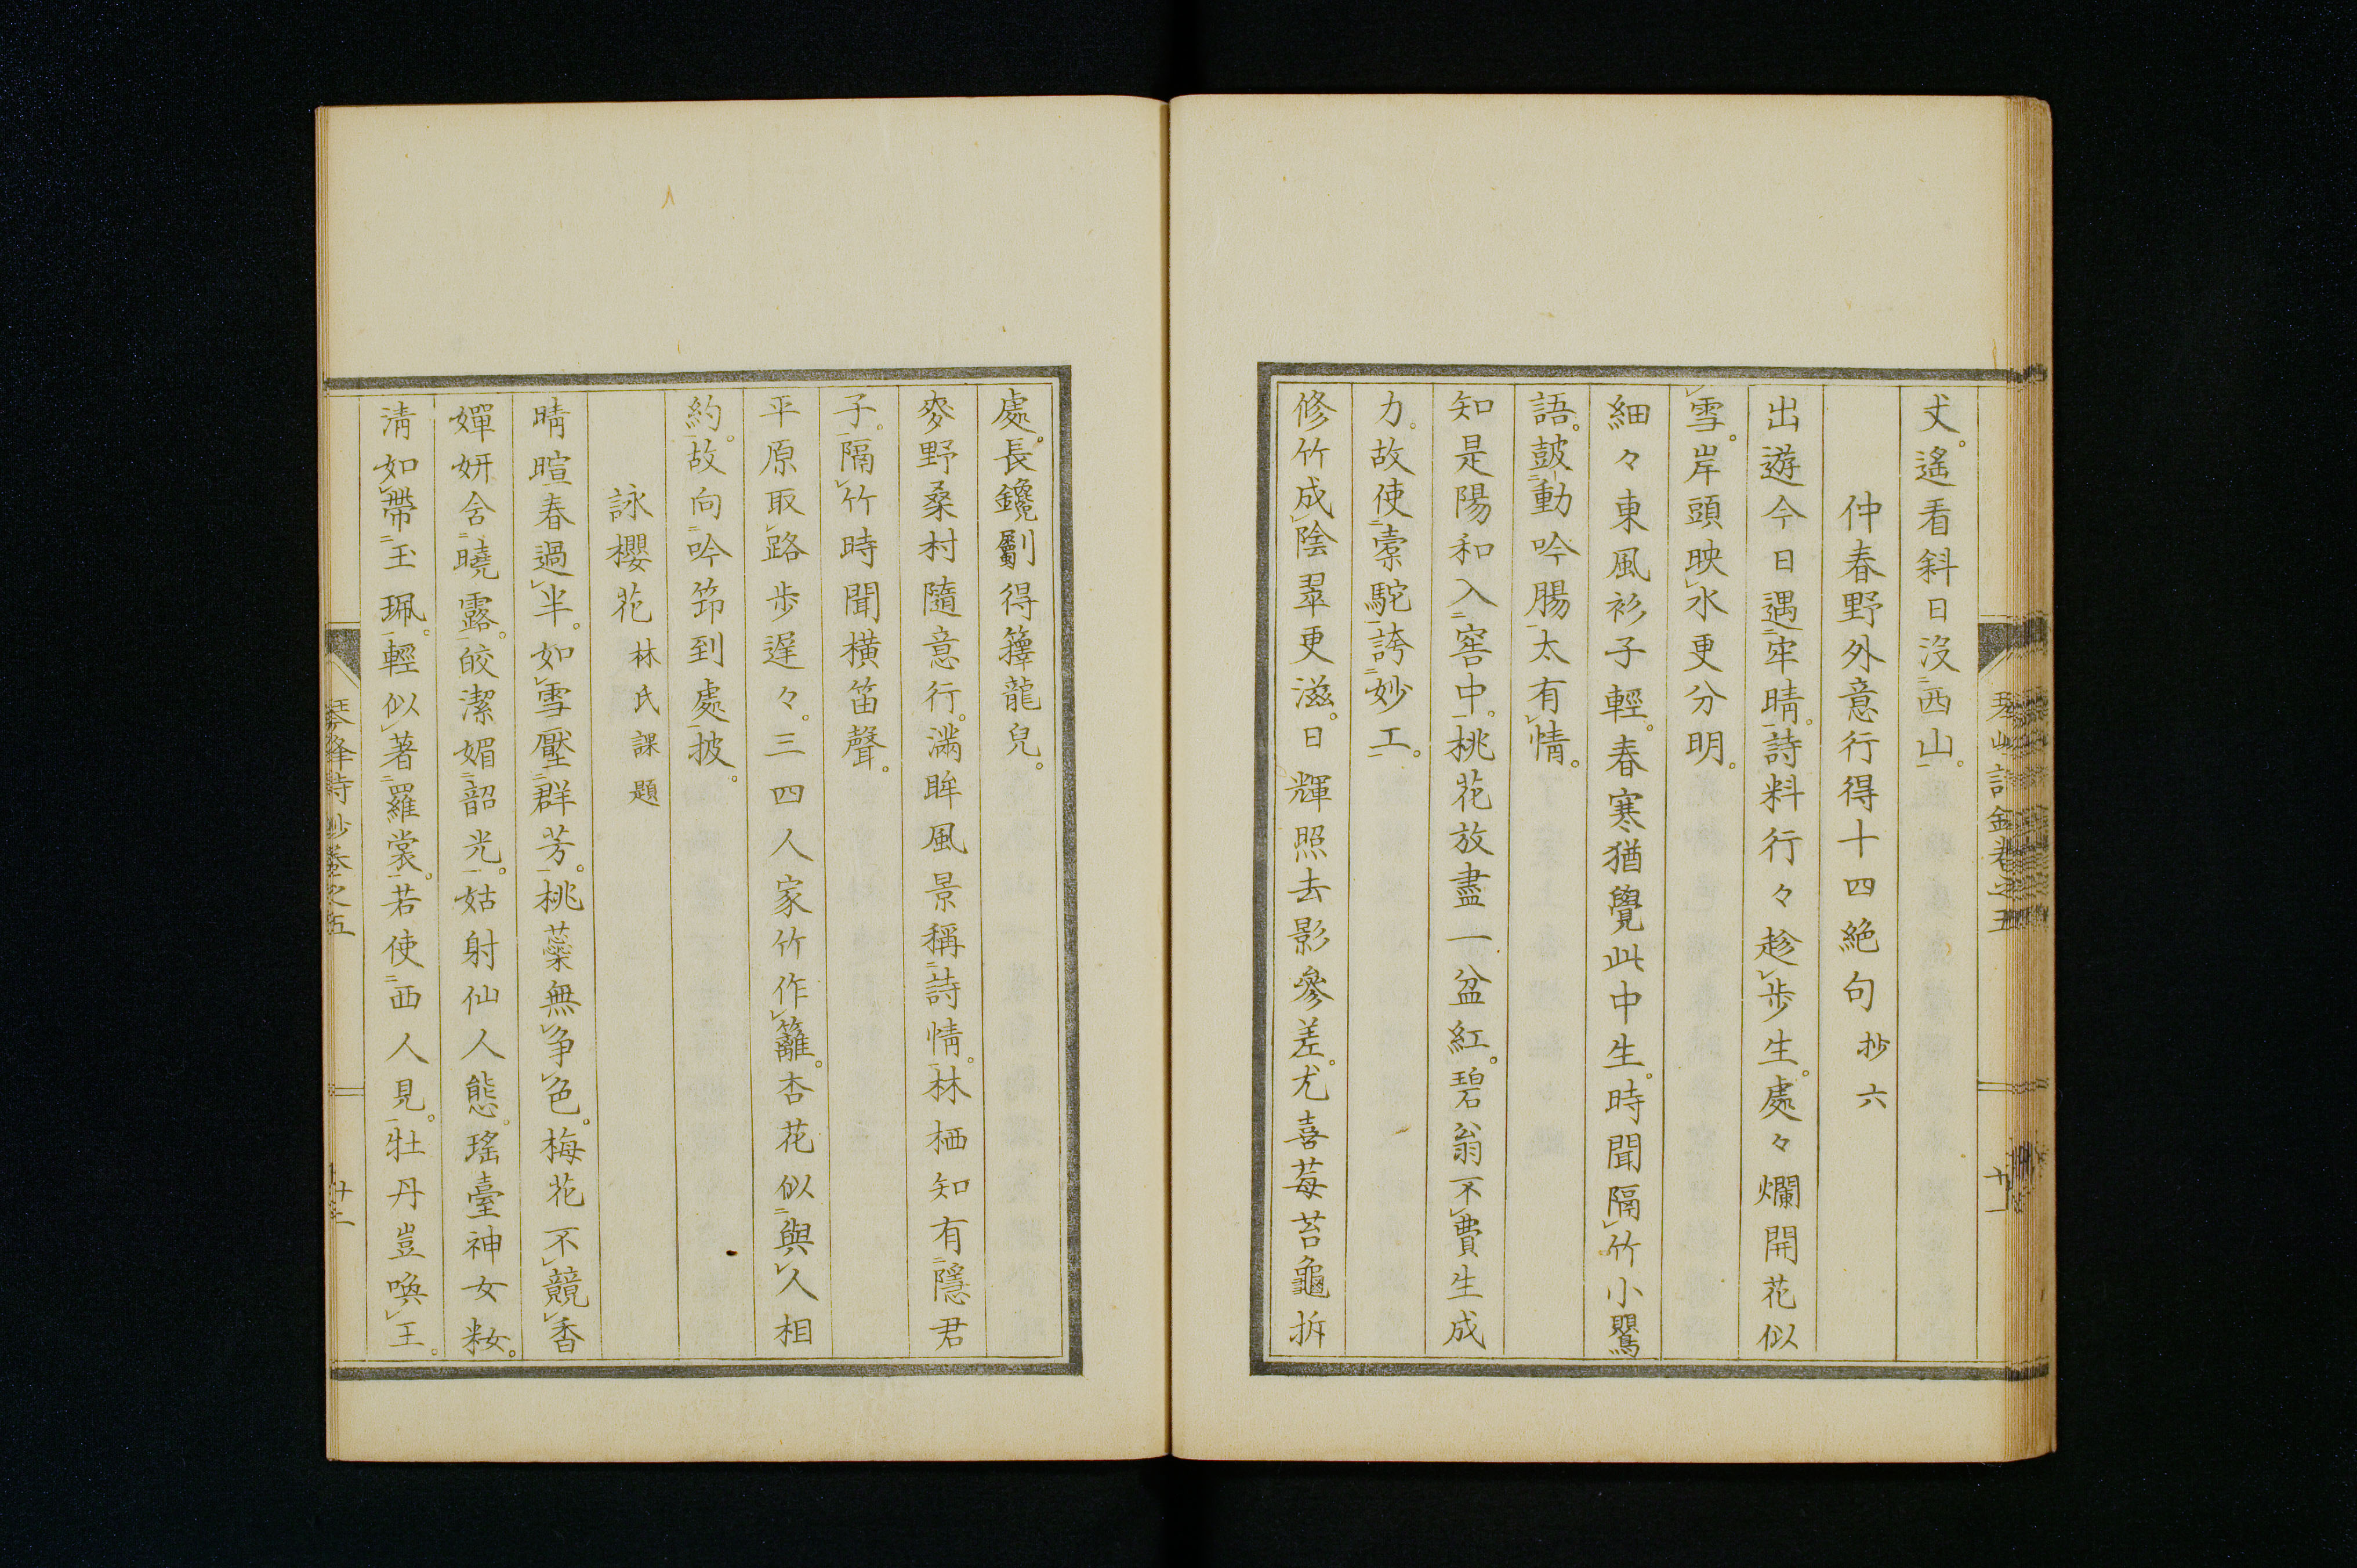 丈。遙看斜日没西山。
仲春野外意行得十四絶句 抄六
出遊今日遇牢晴。詩料行々趁歩生。處々爛開花似
雪。岸頭映水更分明。
細々東風衫子輕。春寒猶覺此中生。時聞隔竹小鸎
語。鼓動吟腸太有情。
知是陽和入窖中。桃花放盡一盆紅。碧翁不費生成
力。故使橐駝誇妙工。
修竹成陰翠更滋。日輝照去影參差。尤喜莓苔龜拆
處。長鑱劚得籜龍兒。
麥野桑村隨意行。滿眸風景稱詩情。林栖知有隱君
子。隔竹時聞橫笛聲。
平原取路歩遲々。三四人家竹作籬。杏花似與人相
約。故向吟笻到處披。
詠櫻花 林氏課題
晴暄春過半。如雪壓群芳。桃蘂無争色。梅花不競香
嬋妍含曉露。皎潔媚韶光。姑射仙人態。瑤臺神女粧。
淸如帶玉珮。輕似著羅裳。若使西人見。牡丹豈喚王。
琴峰詩抄卷之五
十二